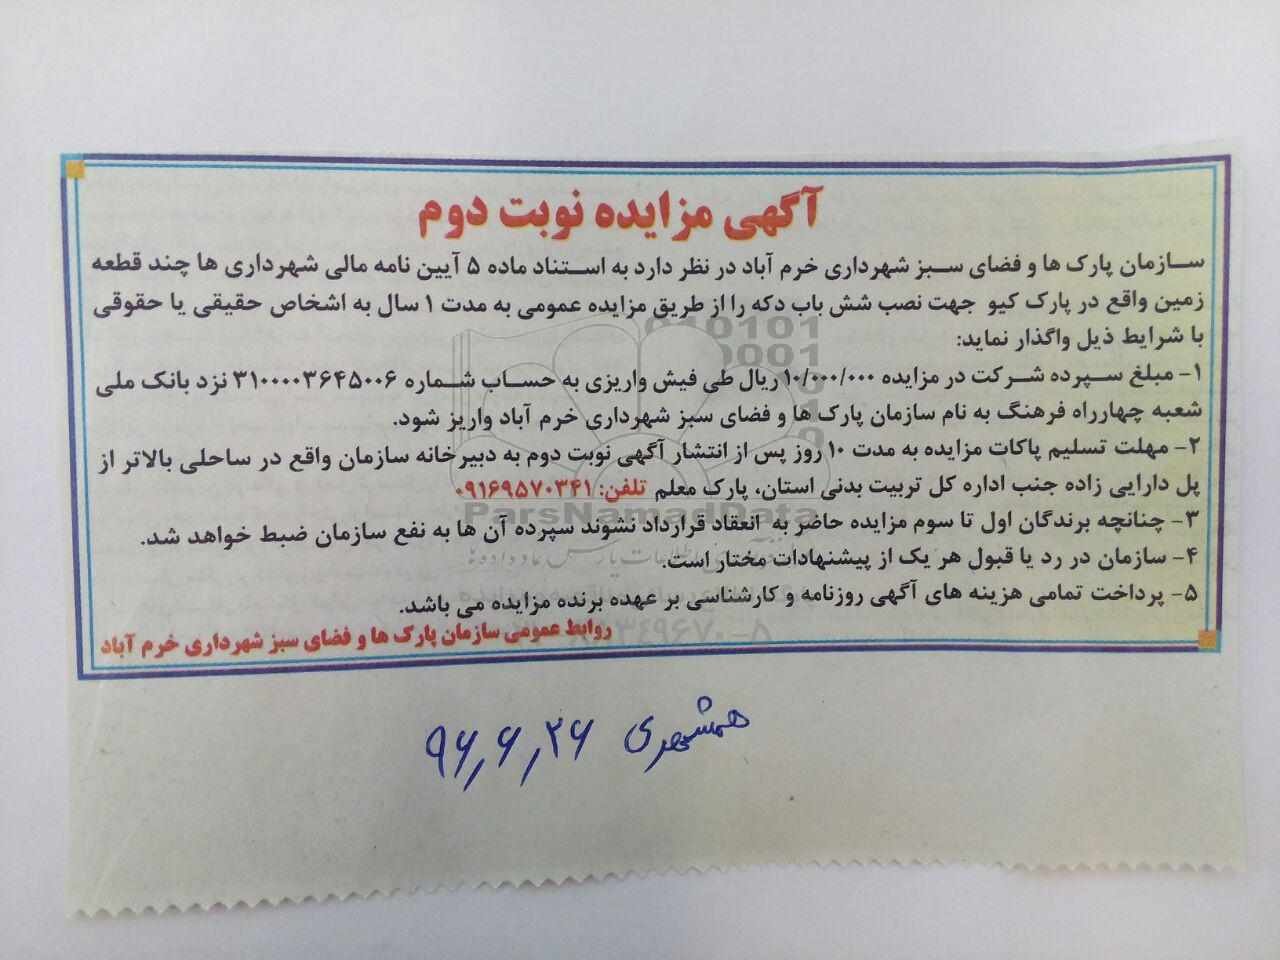 آگهی مزایده نوبت دوم
سازمان پارک ها و فضای سبز شهرداری خرم آباد در نظر دارد به استناد ماده ۵ آیین نامه مالی شهرداری ها چند قطعه
زمین واقع در پارک کیو جهت نصب شش باب دکه را از طریق مزایده عمومی به مدت ۱ سال به اشخاص حقیقی یا حقوقی
با شرایط ذیل واگذار نماید:
۱- مبلغ سپرده شرکت در مزایده ۱۰/۰۰۰/۰۰۰ ریال طی فیش واریزی به حساب شماره ۳۱۰۰۰۰۳۶۴۵۰۰۶ نزد بانک ملی
شعبه چهارراه فرهنگ به نام سازمان پارک ها و فضای سبز شهرداری خرم آباد واریز شود.
۲- مهلت تسلیم پاکات مزایده به مدت ۱۰ روز پس از انتشار آگهی نوبت دوم به دبیرخانه سازمان واقع در ساحلی بالاتر از
پل دارایی زاده جنب اداره کل تربیت بدنی استان، پارک معلم تلفن: ۰۹۱۶۹۵۷۰۳۴۱
۳- چنانچه برندگان اول تا سوم مزایده حاضر به انعقاد قرارداد نشوند سپرده آن ها به نفع سازمان ضبط خواهد شد.
۴- سازمان در رد یا قبول هر یک از پیشنهادات مختار است.
۵- پرداخت تمامی هزینه های آگهی روزنامه و کارشناسی بر عهده برنده مزایده می باشد.
روابط عمومی سازمان پارک ها و فضای سبز شهرداری خرم آباد
ParsNamadData
همشهری ۹۶٫۶٫۲۶